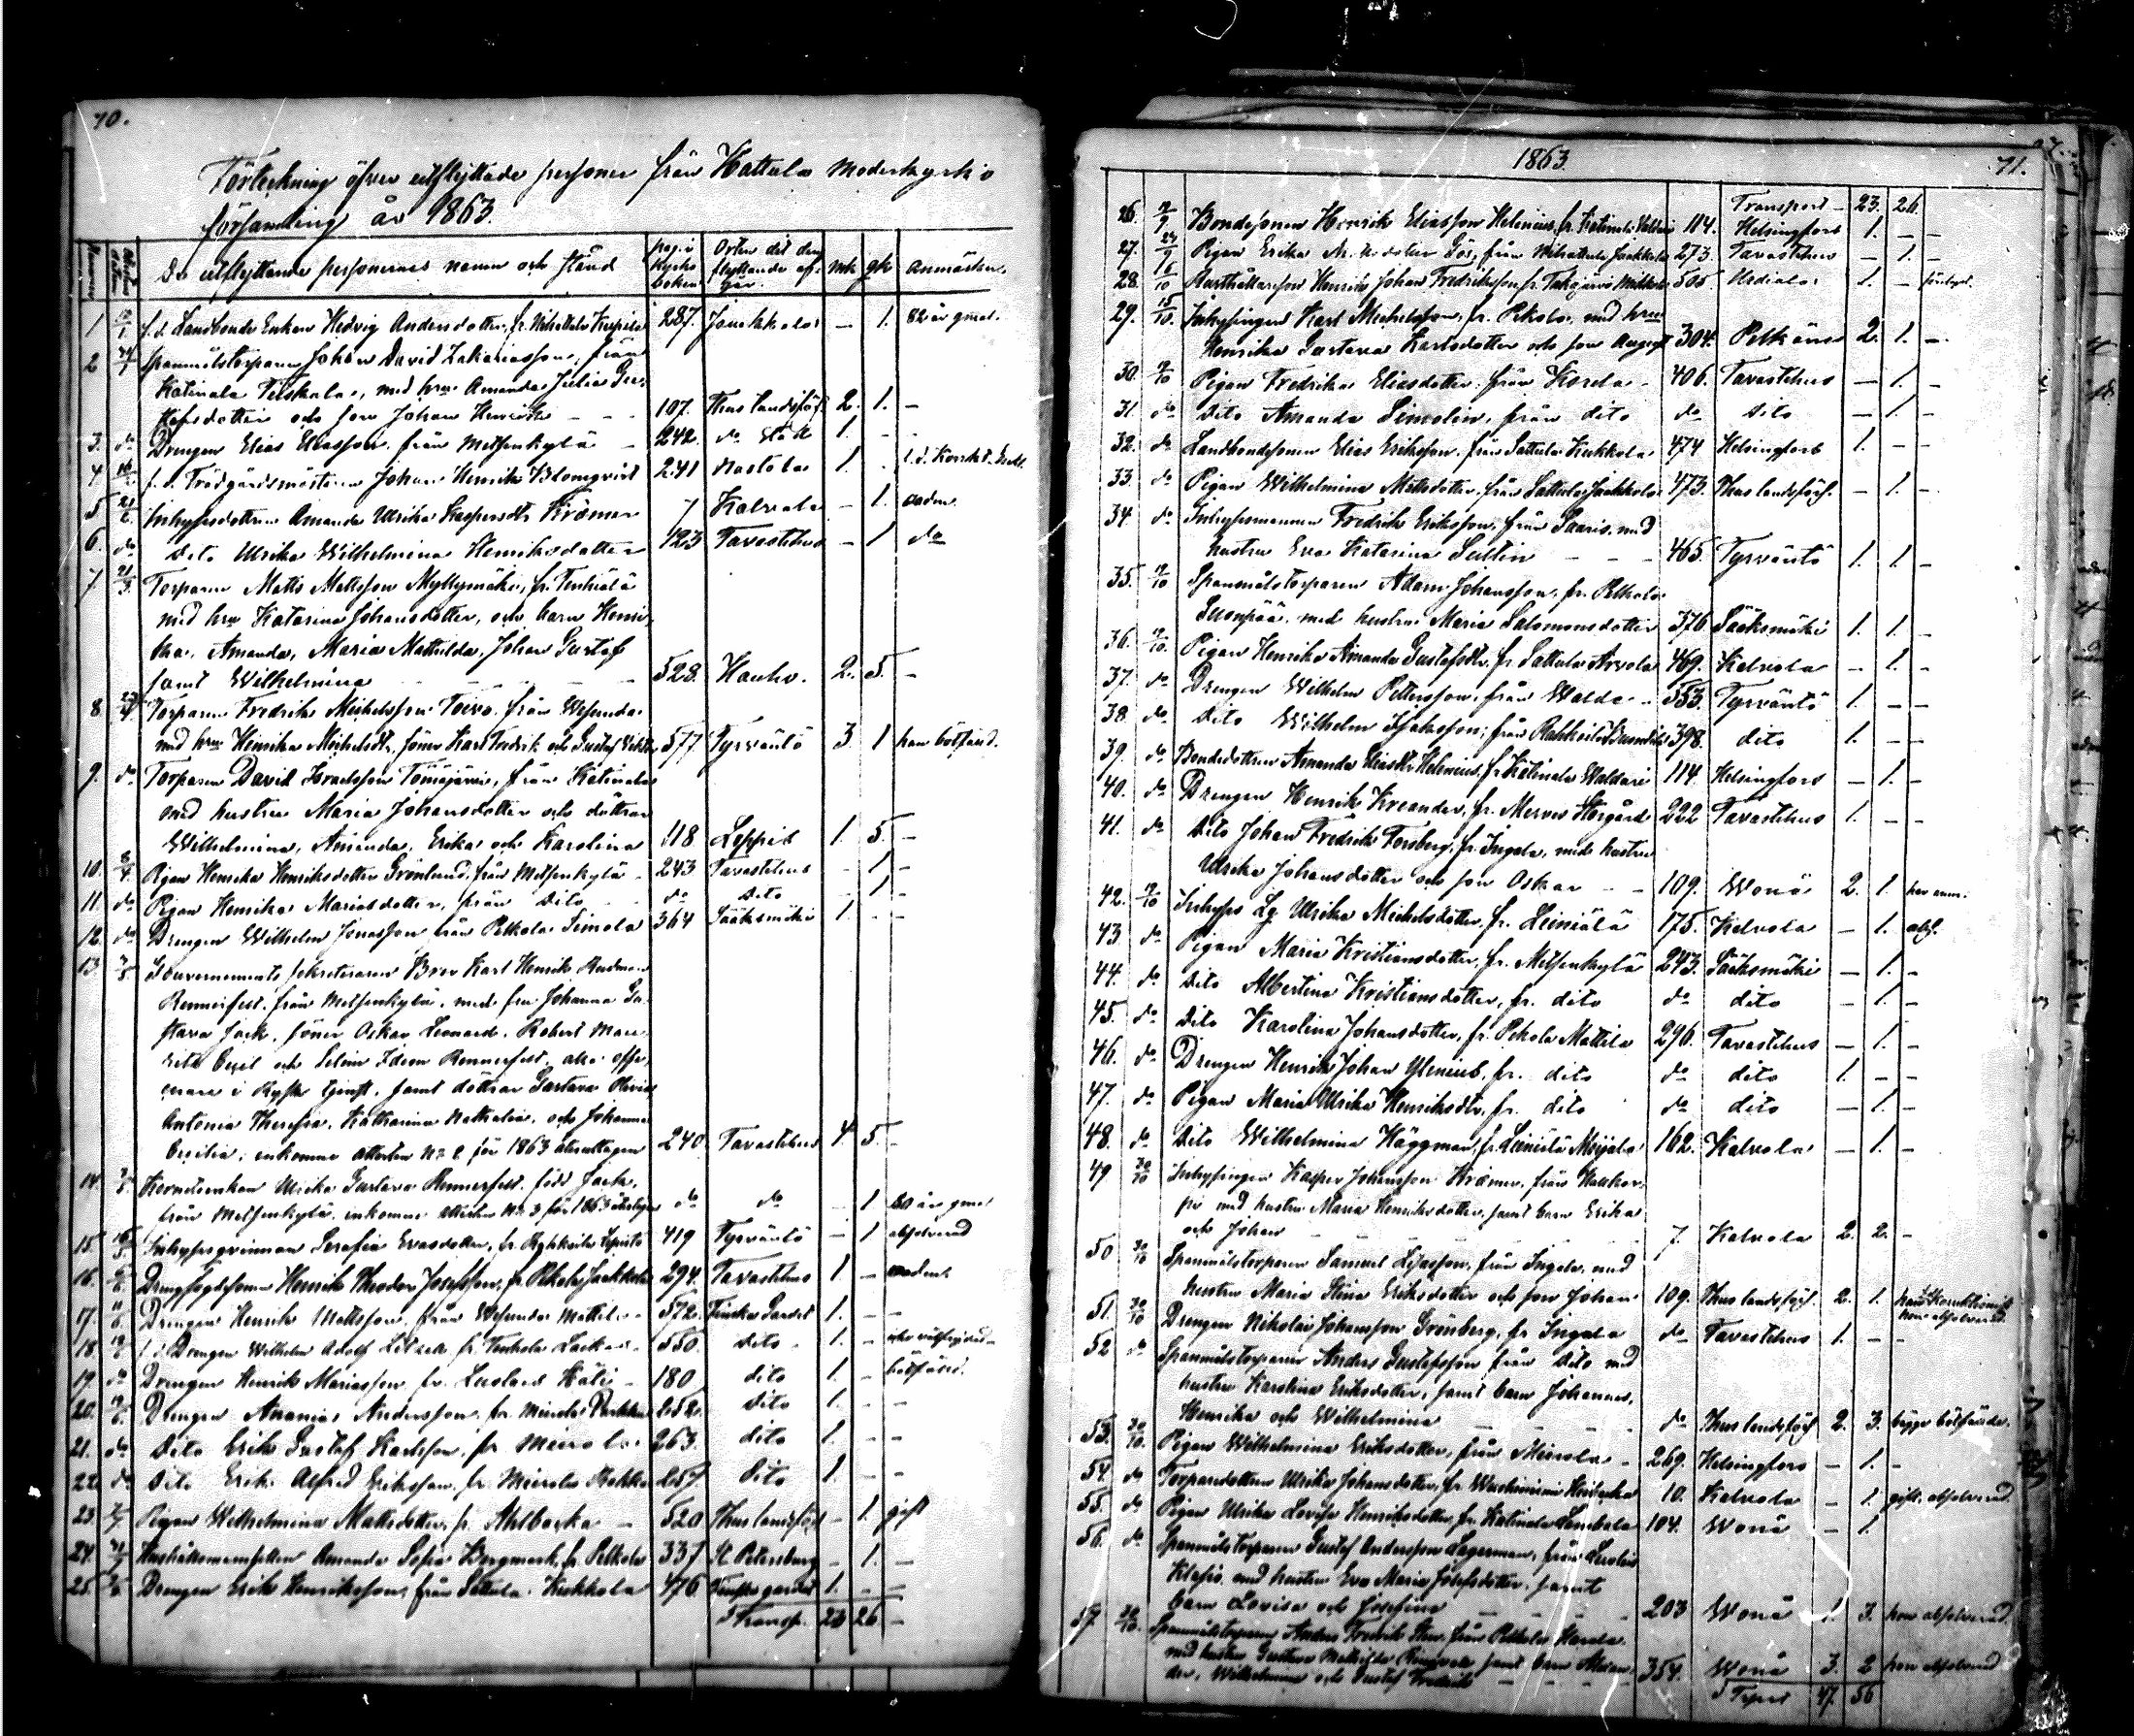 70.
Förteckning öfver utflyttade personer från Hattula Moderkyrko
församling år 1863.
De utflyttande personernas namn och stånd
pag. i kyrko boken
Orten dit den flyttande af- går.
mk
qk
Anmärkn.
1 f.d. Landbonde Enkan Hedvig Andersdotter, fr. Nihattula Keppilä 287. Janakkala — 1. 82 år gmal.
2 Spanmålstorparen Johan David Zakariasson, från
Katinala Pelskola, med hru Amanda Julia Gu-
stafsdotter och son Johan Henrik — 107. Thus landsförs. 2. 1. —
3. do Drengen Elias Eliasson från Metsenkylä — 242. do Stad 1. —
4 f.d. Trädgårdsmästaren Johan Henrik Blomqvist 241 Nastola 1.
5 Inhysesdottren Amanda Ulrika Kaspersdr Krämer 7 Kalvola — 1. vadm.
6. do Dito Ulrika Wilhelmina Henriksdotter 123 Tavastehus — 1 do
7 21/3 Torparen Matts Mattsson Myllymäki, fr. Tenhiälä
med hru Katarina Johansdotter, och barn Henri-
ka, Amanda, Maria Mathilda, Johan Gustaf
samt Wilhelmina — 528. Hauho. 2. 5. —
8. Torparen Fredrik Michelsson Toivo från Wesunda
med hru Henrika Michelsdr, söner Karl Fredrik och Gustaf Viktor 577. Tyrväntö 3 1 han bötfäld.
9. do Torparen David Israelsson Tömäjärvi, från Katinala
med hustru Maria Johansdotter och döttrar
Wilhelmina, Amanda, Erika och Karolina 118 Loppis 1. 5. —
10. Pigan Henrika Henriksdotter Grönlund, från Metsenkylä — 243 Tavastehus — 1 —
11. do Pigan Henrika Mariasdotter, från Dito — do Dito — 1 —
12. do Drengen Wilhelm Jonasson från Pelkola Simola 364 Sääksmäki 1. — —
13 Gouvernements sekreteraren Brev Karl Henrik
Rennerfelt. från Metsenkylä, med fru Johanna Gu-
stava Jack, söner Oskar Leonard, Robert
och Selim Edvin Rennerfelt, alla offi-
cerare i Rysk tjenst, samt döttrar Gustava
Antonia Theresia, Katharina Nathalia, och Johanna
Cecilia, inkomne attesten No 2 för 1863 återtagen 240. Tavastehus 4. 5. —
14. Kornetsenkan Ulrika Gustava Rennerfelt, född Jack,
från Metsenkylä, inkomne attesten No 3 för 1863 återtagen do do — 1 80 år gmal
15 Inhysesqvinnan Serafia Evasdotter, fr. Rahkoila 419 Tyrväntö — 1 absolverad
16. Drengsogdesonen Henrik Theodor Josefsson, fr. Pekola Jaakkola 294. Tavastehus 1. —
17. Drengen Henrik Mattsson, från Wesunda Mattila — 572. Finska Gardet 1. — —
18. f.d. Drengen Wilhelm Adolf fr. Tenhola Laikas — 550. Dito — 1. —
19. do Drengen Henrik Mariasson fr. Leiniälä Käki — 180 dito 1. — bötfäld.
20. Drengen Ananias Andersson fr. Mierola Parkkina 252. Dito 1. — —
21. do Dito Erik Gustaf Karlsson, fr. Mierola 263. dito 1. — —
22. do Dito Erik Alfred Eriksson, fr. Mierola Pukka 257 Dito 1 — —
23. Pigan Wilhelmina Mattsdotter, fr. Ahlbacka — 520 Thus landsförs — 1. gift
24. Hushållsmamsellen Amanda Sofia Bergmark, fr. Pelkola 337 St Petersburg — 1. —
25. Drengen Erik Henriksson, från Sattula Kukkola 476. Finska gardet 1. — —
Transp. 23 26 —
1863.
71.
Transport — 23. 26.
26. Bondesonen Henrik Eliasson Helenius, fr. Katinala Valdari 114. Helsingfors 1. — —
27. Pigan Erika från Nihattula Jaakkola 273. Tavastehus — 1. —
28. Rusthållaresson Henrik Johan Fredriksson, fr. Takajärvi Mikkola 505. Urdiala 1. —
29. 15/10. Inhysingen Karl Michelsson, fr. Pekola, med hru
Henrika Gustava Karlsdotter och son August 304. Pelkäne 2. 1. —
30. Pigan Fredrika Eliasdotter från Karela — 406. Tavastehus — 1. —
31. do Dito Amanda Simolin, från dito do Dito — 1. —
32. do Landbondesonen Elias Eriksson, från Sattula Kukkola 474 Helsingfors 1. —
33. do Pigan Wilhelmina Mattsdotter från Sattula Jaakkola 473. Thus landsförs. — 1. —
34. do Inhysesmannen Fredrik Eriksson, från Saaris, med
hustru Eva Katarina — — 465. Tyrväntö 1. 1. —
35. Spanmålstorparen Adam Johansson, fr. Pelkola
Suonpää, med hustru Maria Salomonsdotter 376 Sääksmäki 1. 1. —
36. Pigan Henrika Amanda Gustafsdr, fr. Sattula Arvola 469. Kalvola — 1. —
37. do Drengen Wilhelm Pettersson, från Walda — 553. Tyrväntö 1. — —
38. do Dito Wilhelm Isaksson, från Rahkoila 398. dito 1. — —
39. do Bondedottren Amanda Eliasdr Helenius, fr. Katinala Waldari 114. Helsingfors — 1. —
40. do Drengen Henrik Kreander, fr. Merven Storgård 222 Tavastehus 1. — —
41. do Dito Johan Fredrik Forsberg, fr. Ingala, med hustru
Ulrika Johansdotter och son Oskar — — 109. Wonå 2. 1.
42. Inhyses Lg Ulrika Michelsdotter, fr. Leiniälä 175. Kalvola — 1. abs.
43. do Pigan Maria Kristiansdotter, fr. Metsenkylä 243. Sääksmäki — 1. —
44. do Dito Albertina Kristiansdotter, fr. dito do dito — 1. —
45. do Dito Karolina Johansdotter, fr. Pekola Mattila 296. Tavastehus — 1. —
46. do Drengen Henrik Johan Ylenius, fr. dito do dito 1. — —
47. do Pigan Maria Ulrika Henriksdr, fr. dito do dito — 1. —
48. do Dito Wilhelmina Häggman, fr. Leiniälä Meijala 162. Kalvola — 1. —
49 30/10 Inhysingen Kasper Johansson Krämer, från
med hustru Maria Henriksdotter, samt barn Erika
och Johan — 7. Kalvola 2. 2. —
50 30/10 Spanmålstorparen Samuel från Ingala, med
hustru Maria Stina Eriksdotter och son Johan 109. Thus landsförs. 2. 1.
51. 30/10 Drengen Nikolai Johansson Grönberg, fr. Ingala do Tavastehus 1. — —
52 do Spanmålstorparen Anders Gustafsson från Dito med
hustru Karolina Eriksdotter, samt barn Johannes,
Henrika och Wilhelmina — do Thus landsförs 2. 3. bägge bötfälde.
53. 30/10. Pigan Wilhelmina Eriksdotter, från Mierola — 269. Helsingfors — 1. —
54. do Torparedottren Ulrika Johansdotter, fr. 10. Kalvola — 1. gift, absolverad.
55. do Pigan Ulrika Lovisa Henriksdotter, fr. Katinala 104. Wonå — 1.
56. do Spanmålstorparen Gustaf Andersson Lagerman, från
med hustru Eva Maria Josefsdotter, samt
barn Lovisa och Josefina — 203 Wonå 1. 3. hon absolverad.
57. 30/10. Spanmålstorparen Anders Fredrik från Pelkola
med hustru Gustava samt barn
Wilhelmina och Gustaf Fredrik — 354. Wonå 3. 2 hon absolverad
47. 56